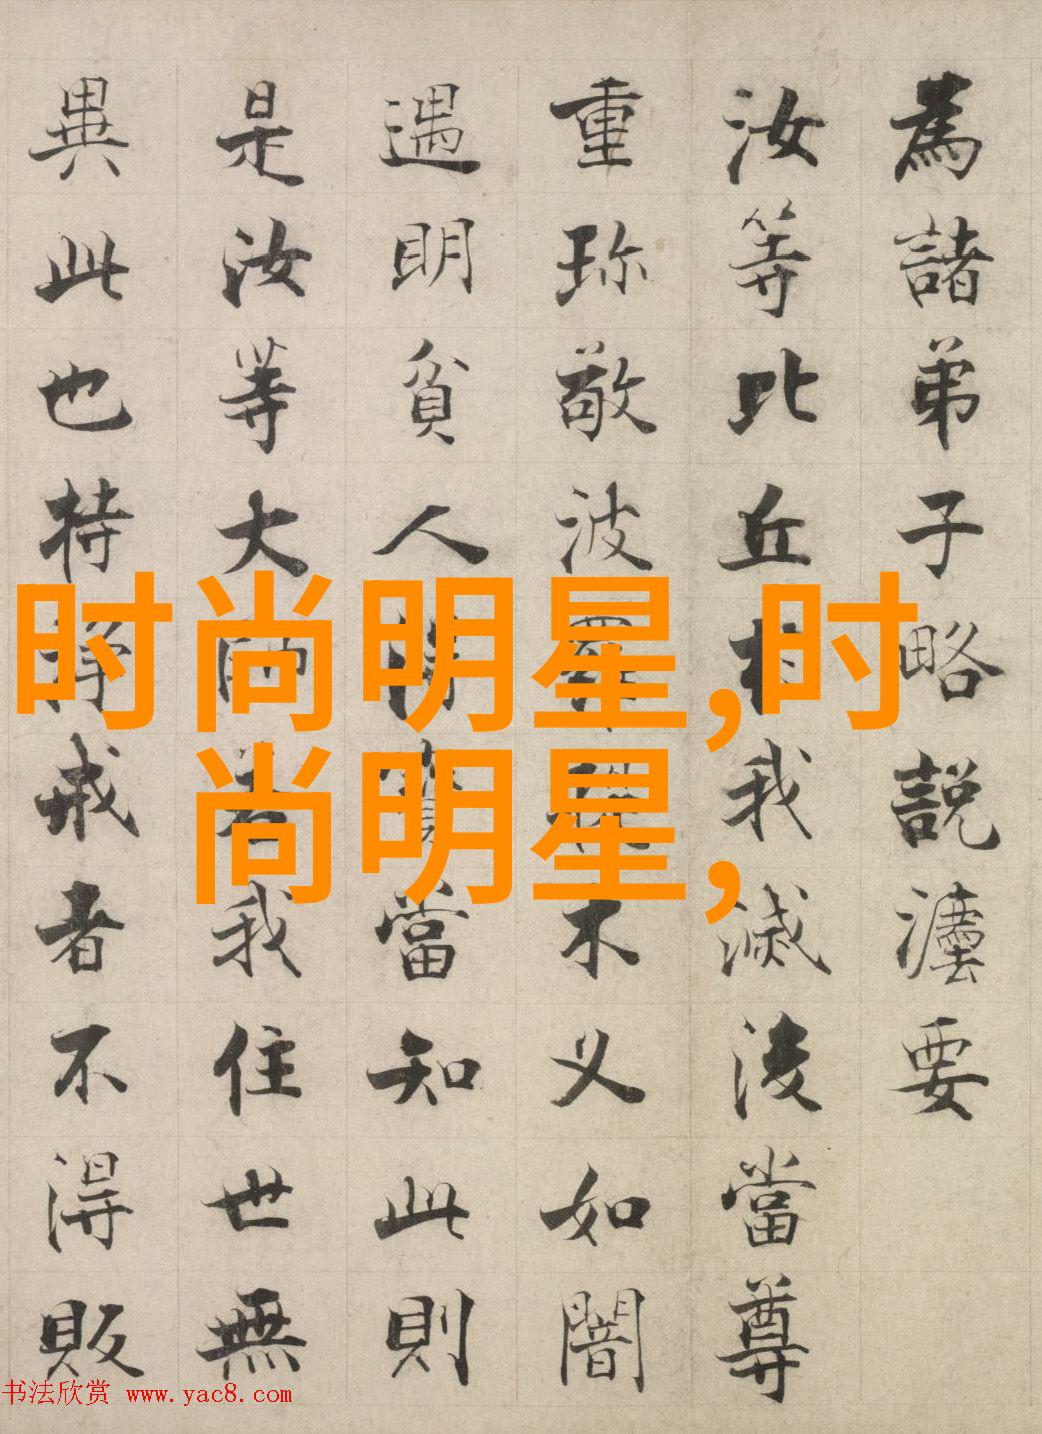 為諸弟子略説灋要
汝等比丘於我滅後當尊
重珎敬波羅提木叉如闇
遇明貧人得寳當知此則
是汝等大師若我住世無
異此也持淨戒者不得販
时尚明星,时
尚明星,
书法欣赏 www.yac8.com